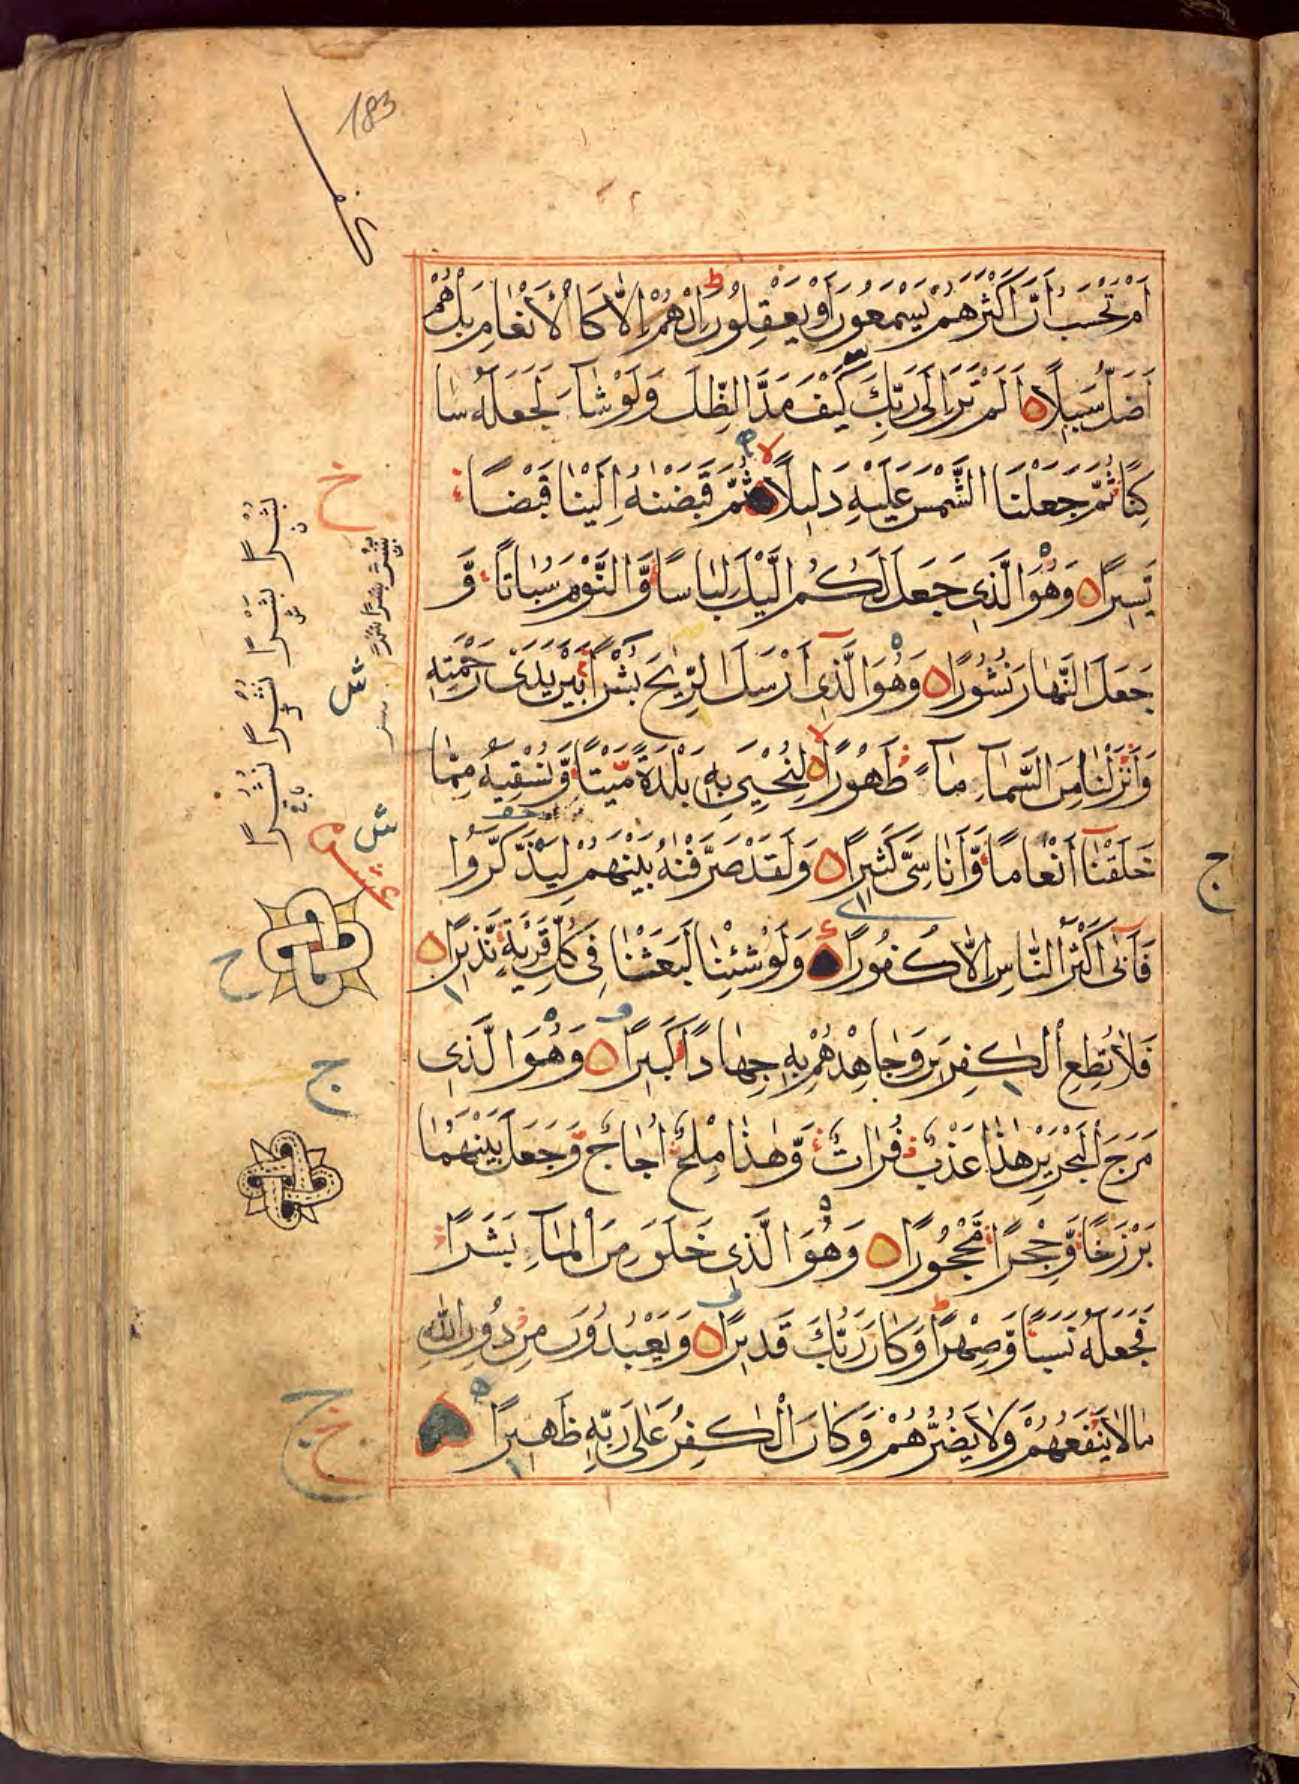 183
اَمْ تَحْسَبُ اَنَّ اَكْثَرَهُمْ يَسْمَعُونَ اَوْ يَعْقِلُونَ اِنْ هُمْ اِلَّا كَا لْاَنْعَامِ بَلْ هُمْ
اَضَلُّ سَبِيلًا اَلَمْ تَرَ اِلٰى رَبِّكَ كَيْفَ مَدَّ الظِّلَ وَلَوْ شَآءَ لَجَعَلَهُ سَا
كِنًا ثُمَّ جَعَلْنَا الشَّمْسَ عَلَيْهِ دَلِيلًا ثُمَّ قَبَضْنٰهُ اِلَيْنَا قَبْضًا
يَّسِيرًا وَهُوَ الَّذِى جَعَلَ لَكُمُ الَّيْلَ لِبَاسًا وَّالنَّوْمَ سُبَاتًا وَّ
جَعَلَ النَّهَارَ نُشُورًا وَهُوَ الَّذِىٓ اَرْسَلَ الرِّيٰحَ بُشْرًا بَيْنَ يَدَىْ رَحْمَتِهِ
وَاَنْزَلْنَا مِنَ السَّمَآءِ مَآءً طَهُورًا لِنُحْيِىَ بِهِ بَلْدَةً مَّيْتًا وَّنُسْقِيَهُ مِمَّا
خَلَقْنَآ اَنْعَامًا وَّاَنَاسِىَّ كَثِيرًا وَلَقَدْ صَرَّفْنٰهُ بَيْنَهُمْ لِيَذَّكَّرُوا
فَاَبٰىٓ اَكْثَرُ النَّاسِ اِلَّا كُفُورًا وَلَوْ شِئْنَا لَبَعَثْنَا فِى كُلِّ قَرْيَةٍ نَّذِيرًا
فَلَا تُطِعِ الْكٰفِرِينَ وَجَاهِدْهُمْ بِهِ جِهَادًا كَبِيرًا وَهُوَ الَّذِى
مَرَجَ الْبَحْرَيْنِ هٰذَا عَذْبٌ فُرَاتٌ وَّهٰذَا مِلْحٌ اُجَاجٌ وَّجَعَلَ بَيْنَهُمَا
بَرْزَخًا وَّحِجْرًا مَّحْجُورًا وَهُوَ الَّذِى خَلَقَ مِنَ الْمَآءِ بَشَرًا
فَجَعَلَهُ نَسَبًا وَّصِهْرًا وَكَانَ رَبُّكَ قَدِيرًا وَيَعْبُدُونَ مِنْ دُونِ اللّٰهِ
مَالَا يَنْفَعُهُمْ وَلَا يَضُرُّهُمْ وَكَانَ الْكٰفِرُ عَلٰى رَبِّهِ ظَهِيرًا
خ
بُشْرًا نَشْرًا نُشْرًا نُشُرًا
ج
ج